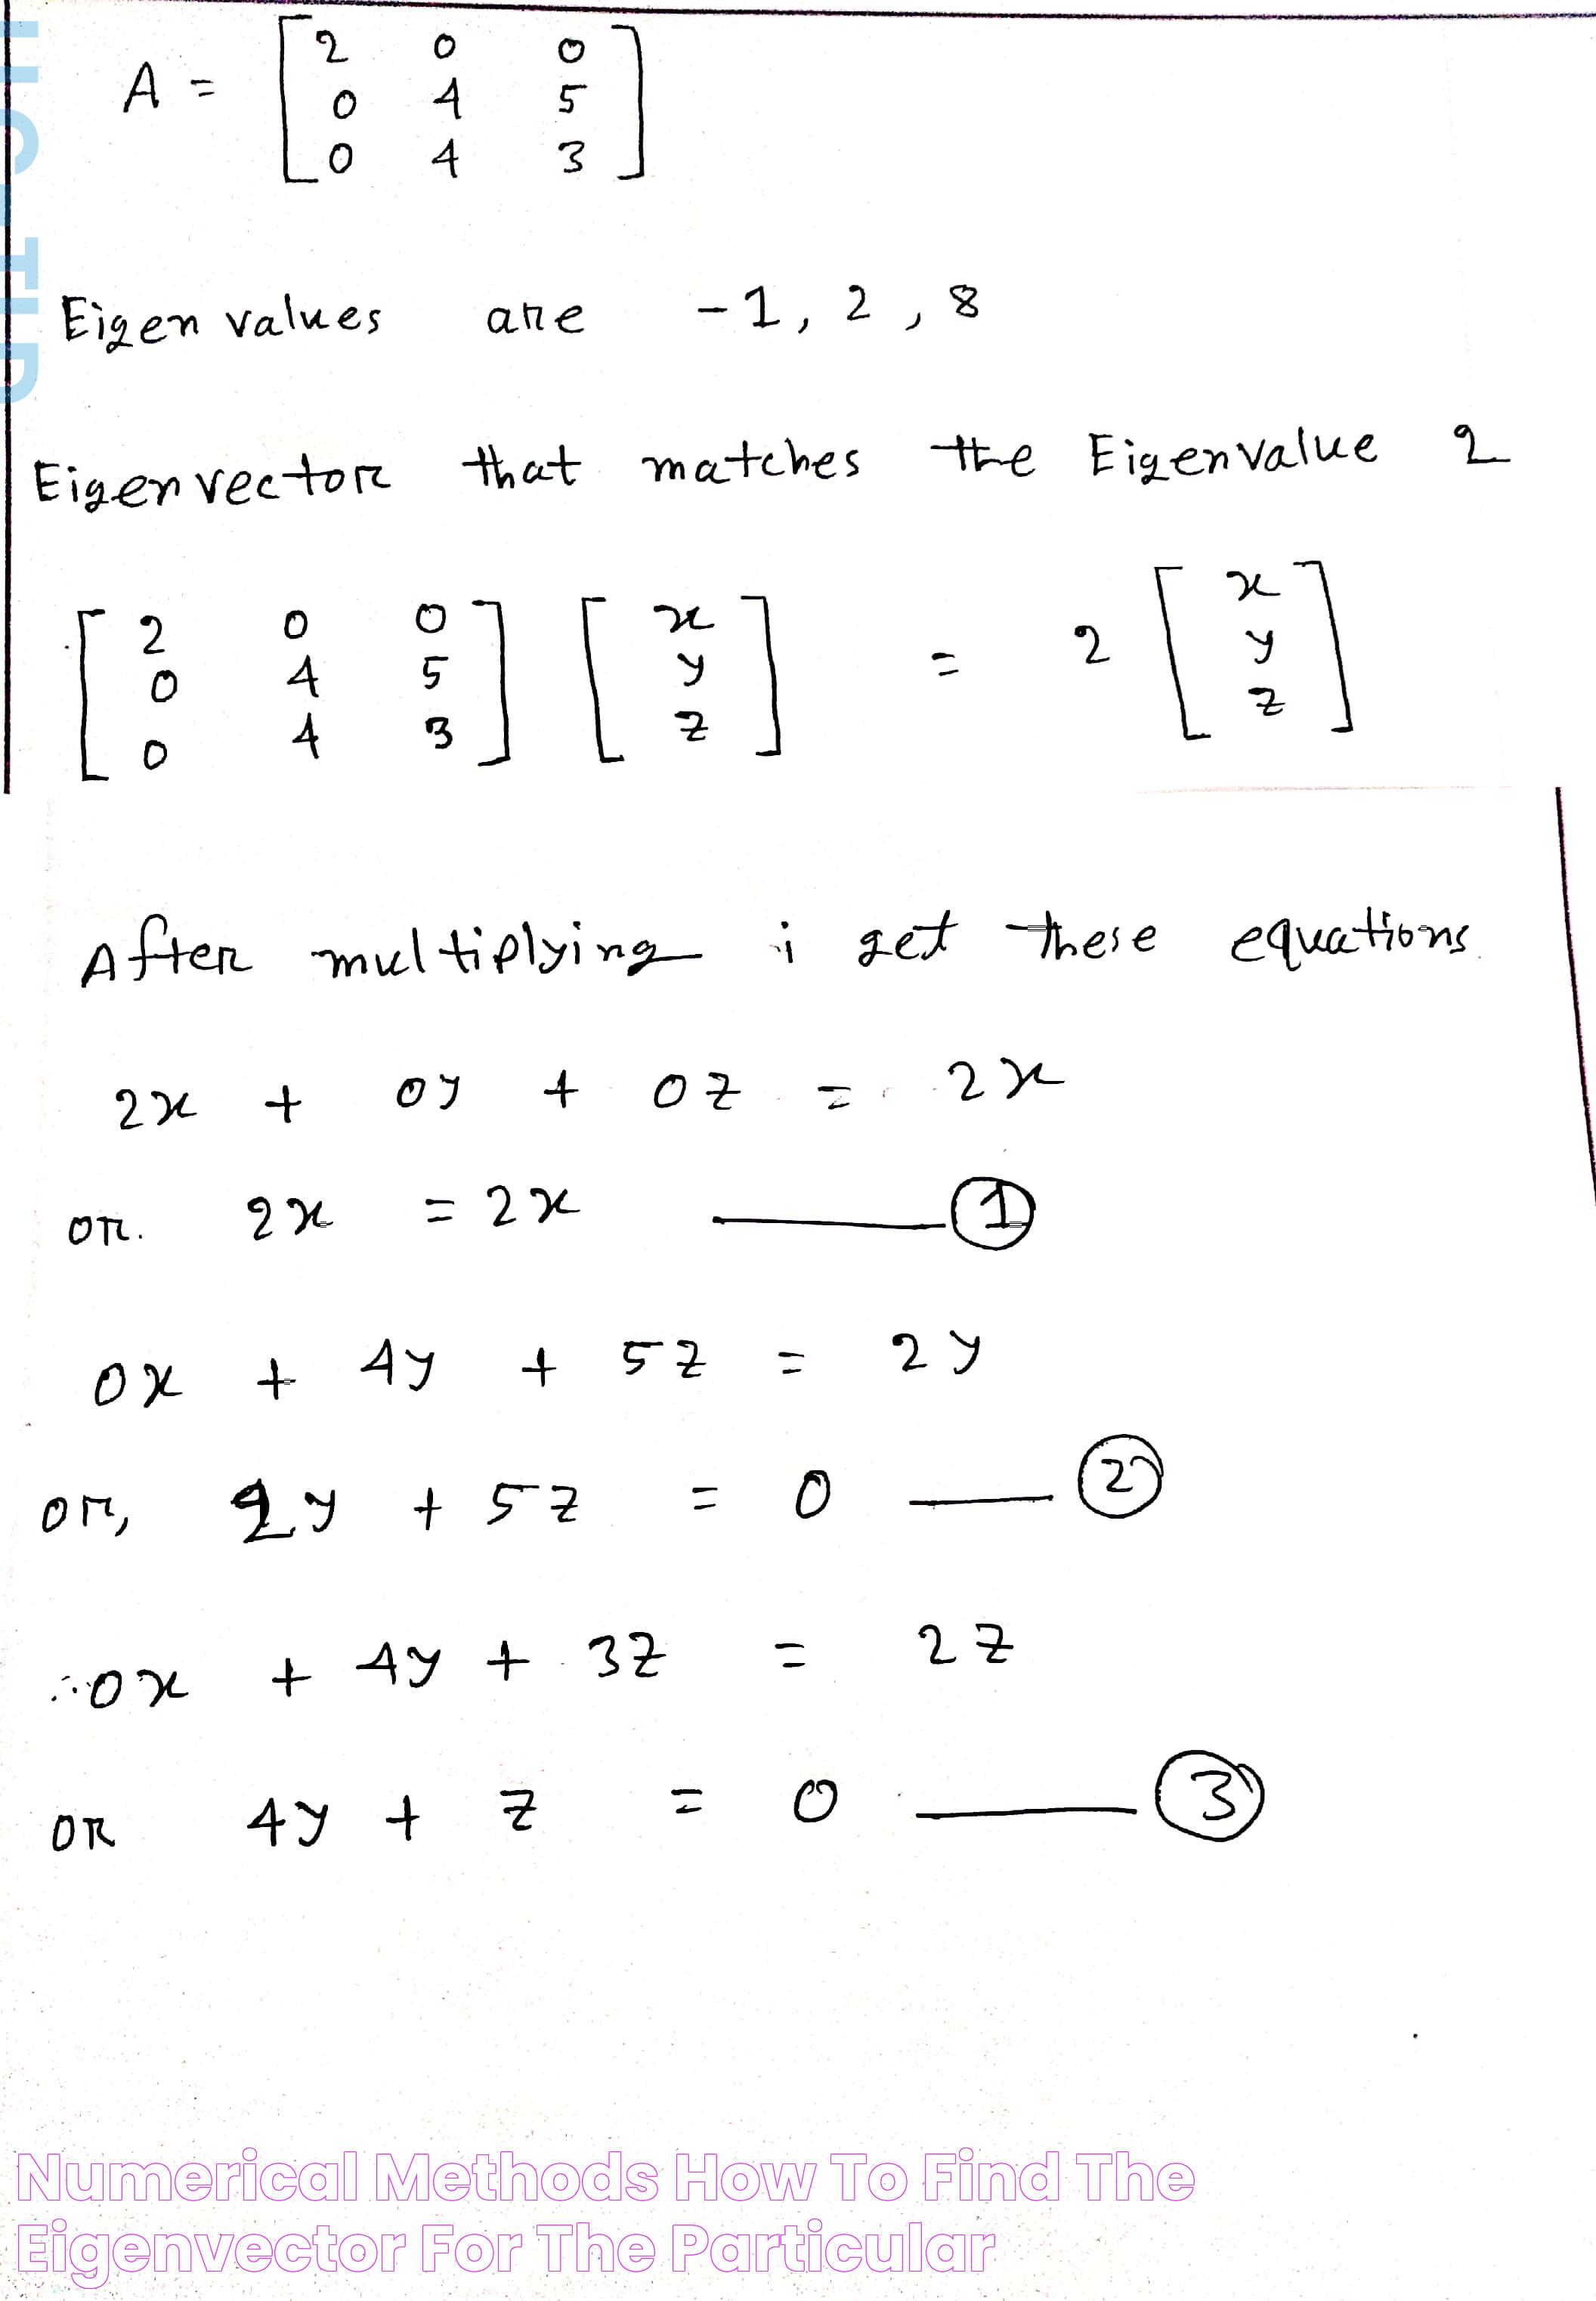 A = [ 2 0 0
0 4 5
0 4 3 ]
Eigen values are -1, 2, 8
Eigen vector that matches the Eigenvalue 2
[ 2 0 0 ] [ x ] = 2 [ x ]
[ 0 4 5 ] [ y ] [ y ]
[ 0 4 3 ] [ z ] [ z ]
After multiplying i get these equations.
2x + 0y + 0z = 2x
or. 2x = 2x —— 1
0x + 4y + 5z = 2y
or, 2y + 5z = 0 —— 2
0x + 4y + 3z = 2z
or 4y + z = 0 —— 3
Numerical Methods How To Find The
Eigenvector For The Particular